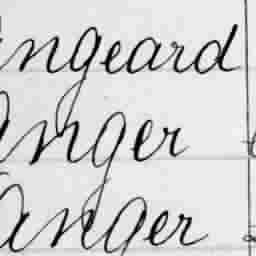 ngeard
anger
anger